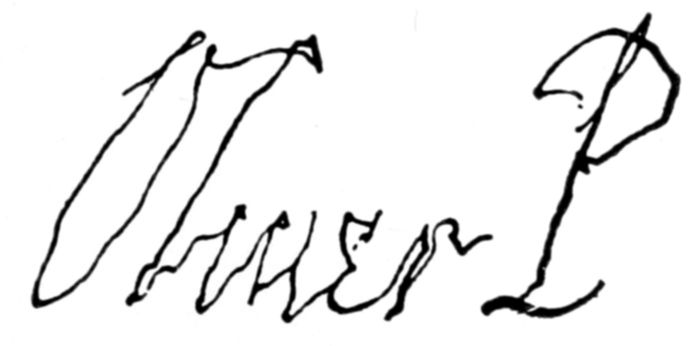 Oliver P